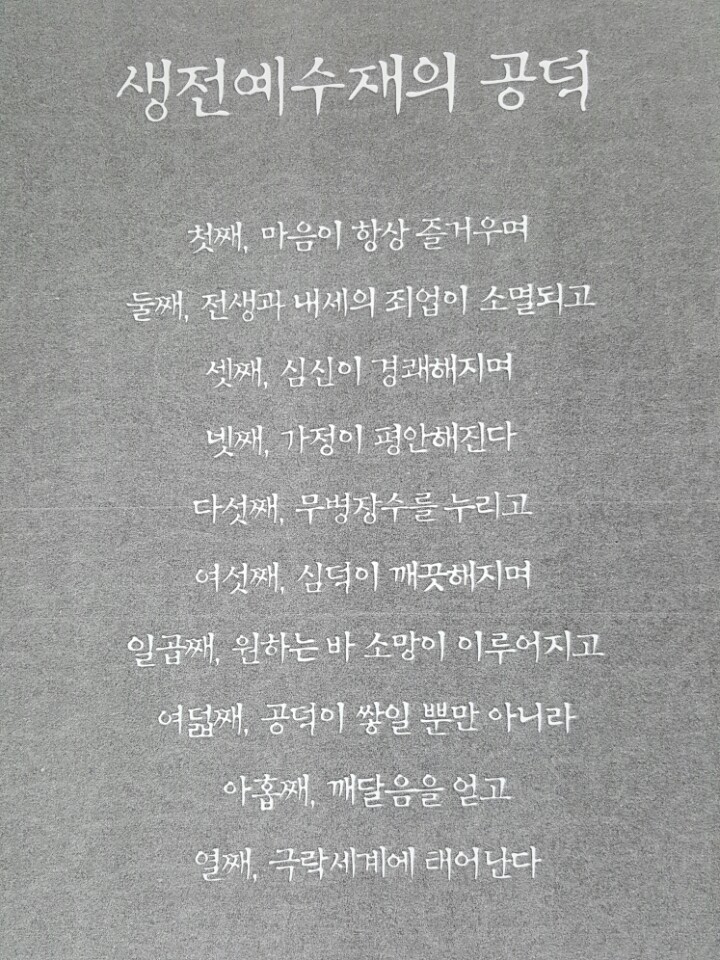 생전예수재의 공덕
첫째, 마음이 항상 즐거우며
둘째, 전생과 내세의 죄업이 소멸되고
셋째, 심신이 경쾌해지며
넷째, 가정이 평안해진다
다섯째, 무병장수를 누리고
여섯째, 심덕이 깨끗해지며
일곱째, 원하는 바 소망이 이루어지고
여덟째, 공덕이 쌓일 뿐만 아니라
아홉째, 깨달음을 얻고
열째, 극락세계에 태어난다